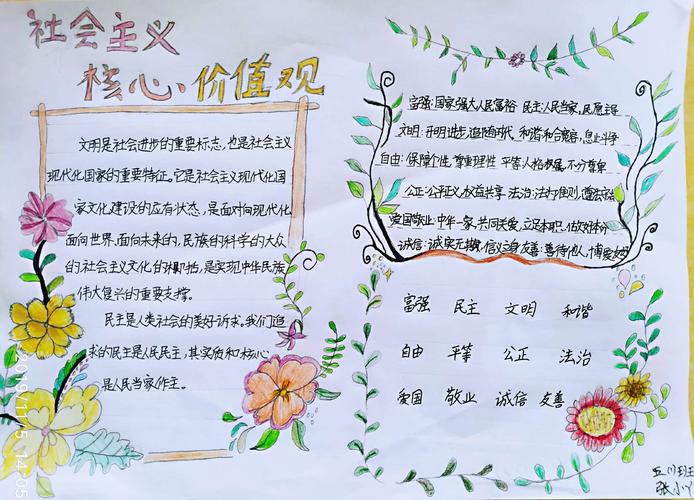 社会主义
核心价值观
文明是社会进步的重要标志,也是社会主义
现代化国家的重要特征。它是社会主义现代化国
家文化建设的应有状态,是面对向现代化
面向世界,面向未来的,民族的科学的大众
的社会主义文化的概括,是实现中华民族
伟大复兴的重要支撑。
民主是人类社会的美好诉求。我们追
求的民主是人民民主,其实质和核心
是人民当家作主。
富强:国家强大人民富裕 民主:人民当家,民愿主
文明:开明进步追随时代 和谐:和合宽容,息止斗争
自由:保障个性,尊重理性 平等:人格权属,不分尊卑
公正:公平正义,权益共享 法治:法护准则,
爱国敬业:中华一家,共同关爱,立足本职,做好本
诚信:诚实无欺,信义 友善:善待他人,博爱
富强 民主 文明 和谐
自由 平等 公正 法治
爱国 敬业 诚信 友善
五(1)班
张小丫
2019/11/5 14:05